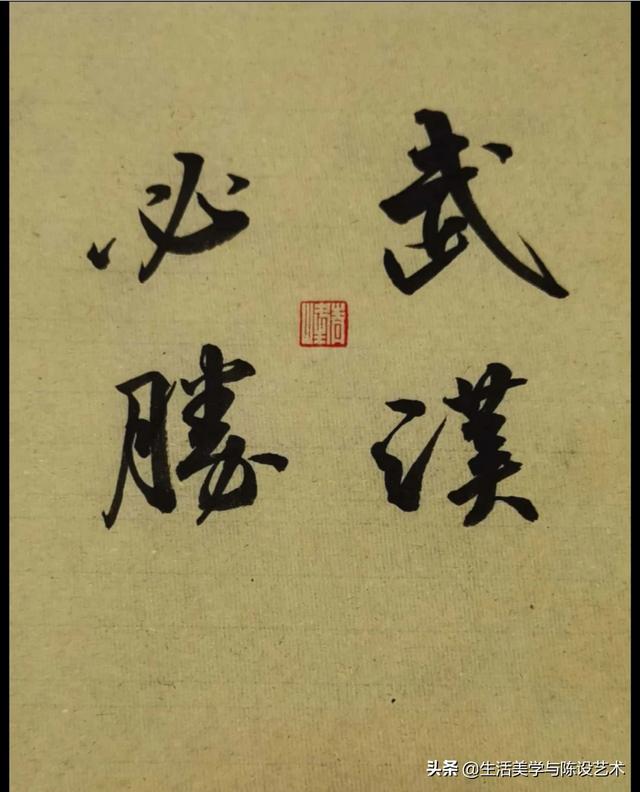 武漢
必勝
头条 @生活美学与陈设艺术